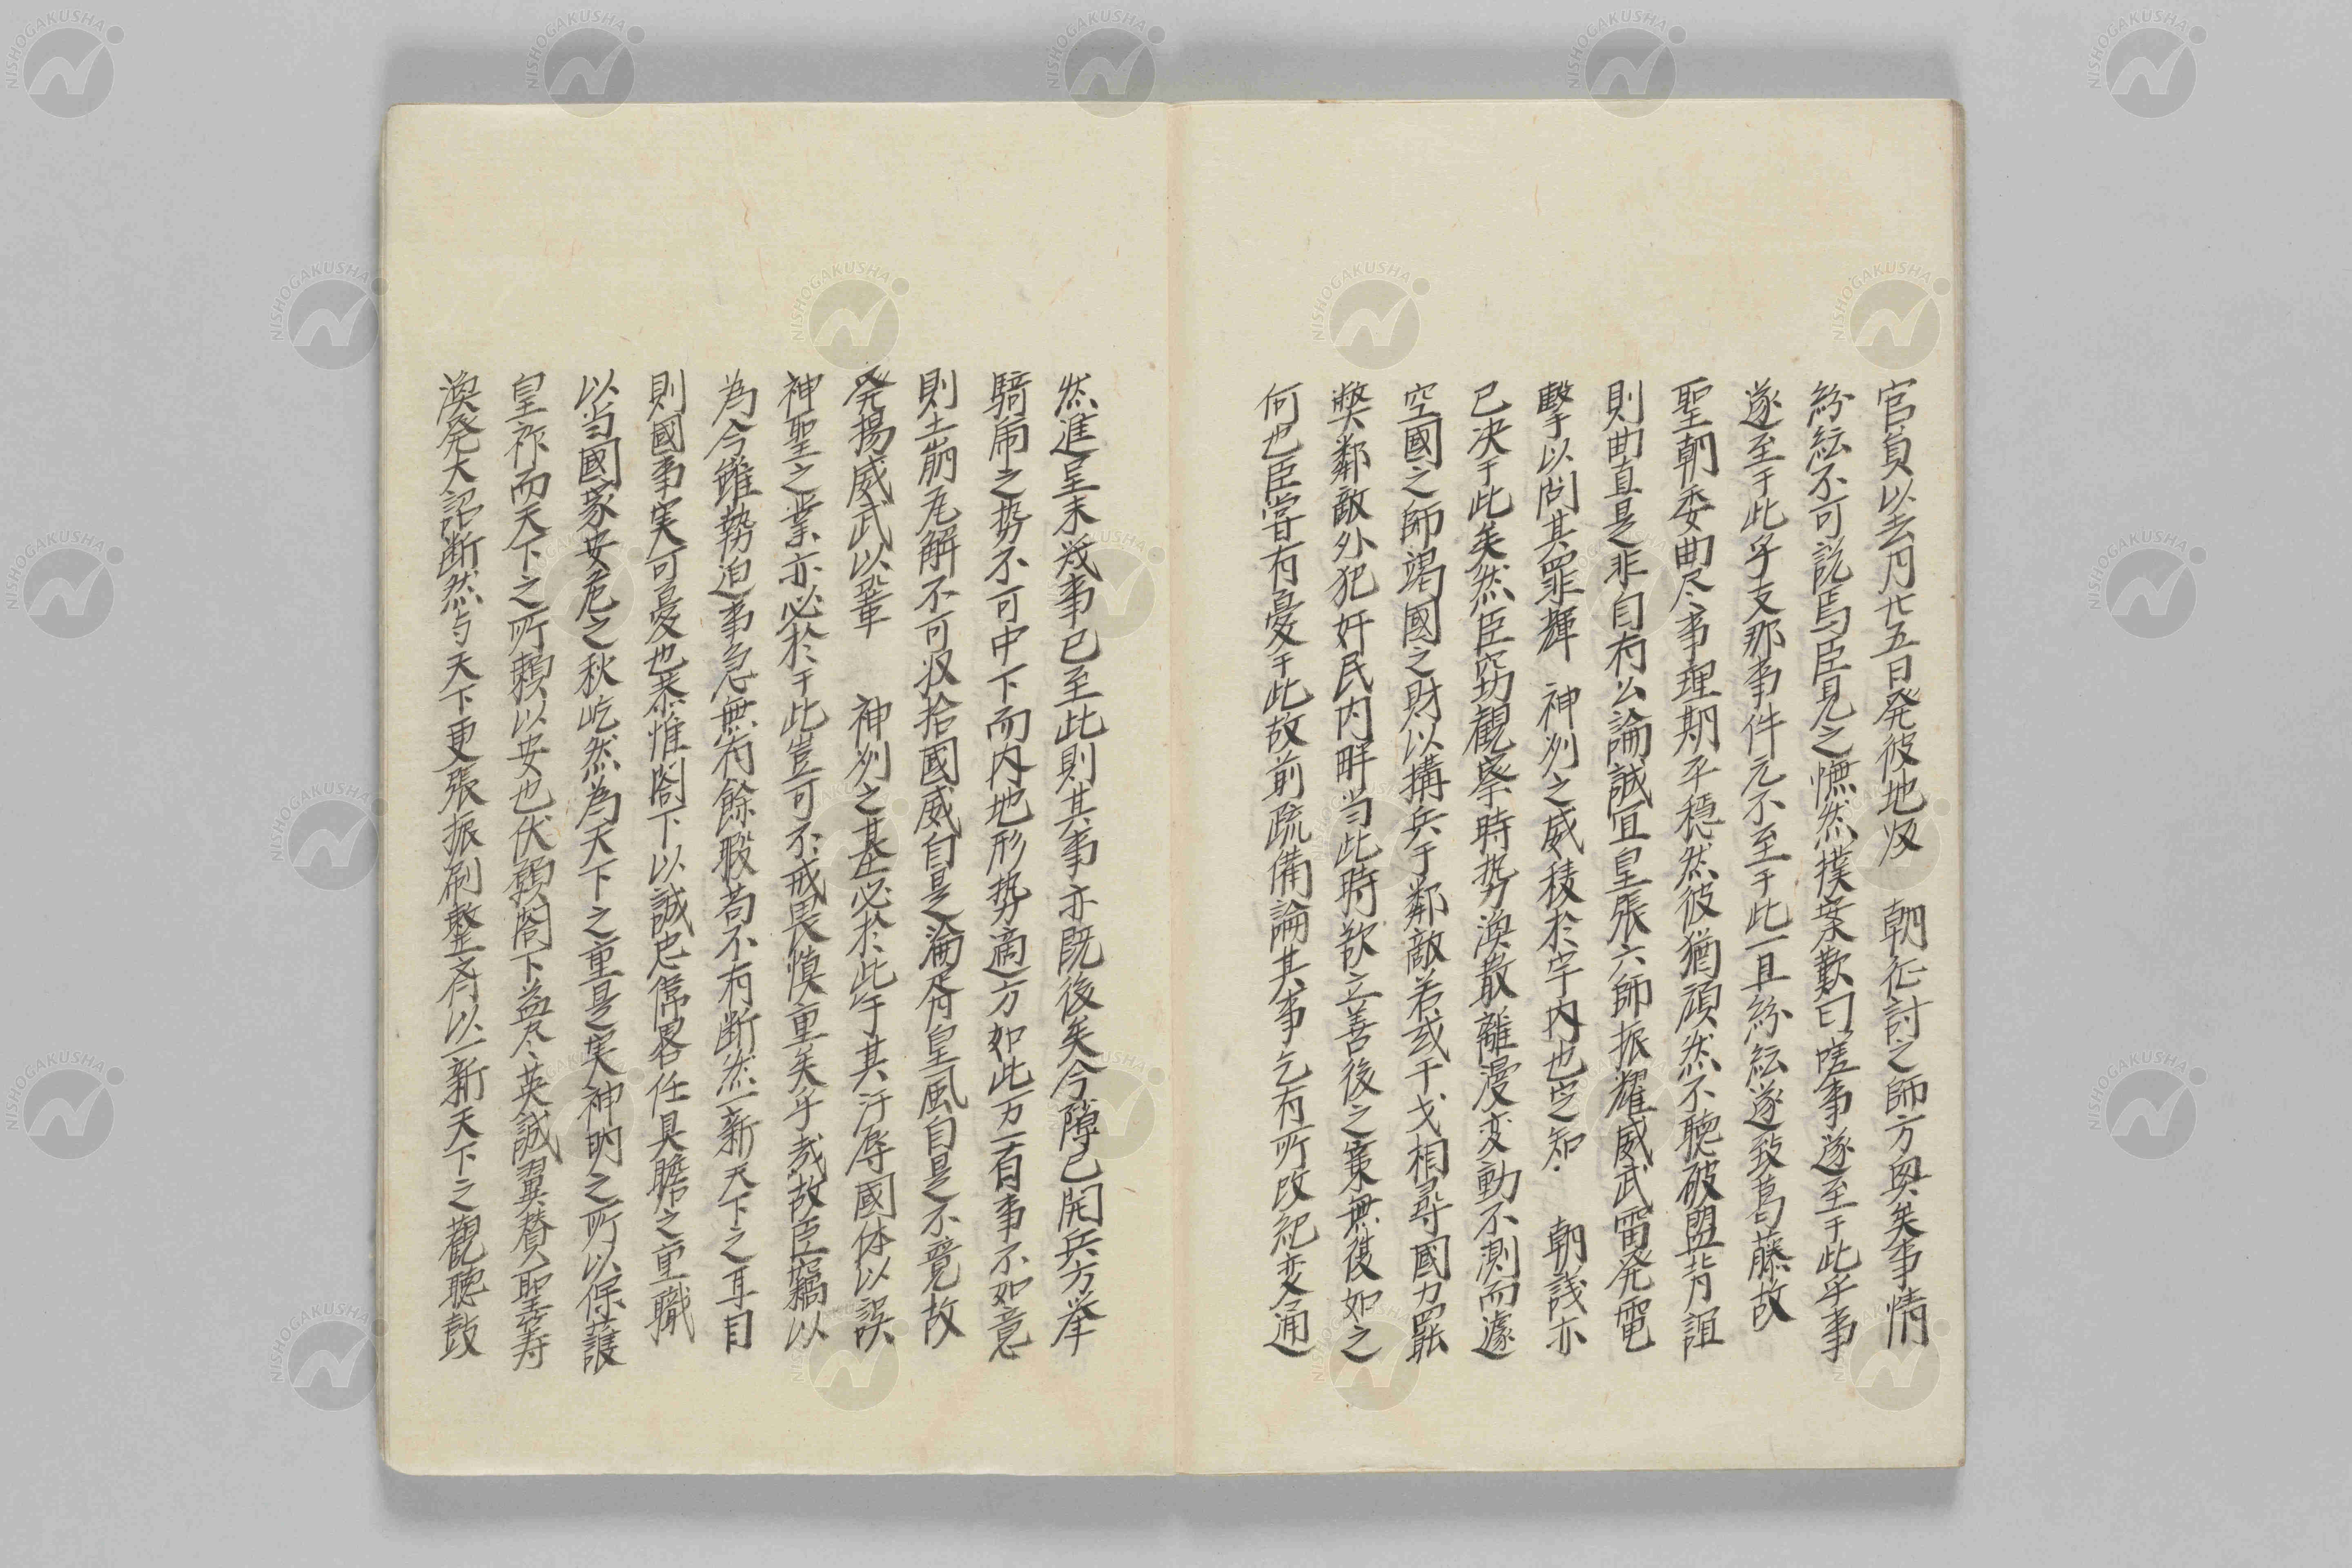 官員以去月廿五日発彼地収　朝征討之師方興矣事情
紛紜不可説焉臣見之憮然撲案歎曰嗟事遂至于此乎事
遂至于此乎支那事件元不至于此一旦紛紜遂致葛藤故
聖朝委曲尽事理期平穏然彼猶頑然不聴破盟背誼
則曲直是非自有公論誠宜皇張六師振耀威武雷発電
撃以問其罪輝　神州之威稜於宇内也定知　朝議亦
已决于此矣然臣窃観察時勢渙散離漫変動不測而遽
空國之師竭國之財以搆兵于鄰敵若或干戈相尋國力羆
弊鄰敵外犯奸民内畔当此時欲立善後之策無復如之
何也臣嘗有憂于此故前疏備論其事乞有所改紀変通
然進呈未幾事已至此則其事亦既後矣今隙已開兵方挙
騎虎之勢不可中下而内地形勢適方如此万一有事不如意
則土崩瓦解不可収拾國威自是淪胥皇風自是不競故
発揚威武以鞏　神州之基必於此乎其汙辱國体以誤
神聖之業亦必於于此豈可不戒畏慎重矣乎哉故臣竊以
為今雖勢迫事急無有餘暇苟不有断然一新天下之耳目
則國事実可憂也恭惟閣下以誠忠偉畧任具瞻之重職
以当國家安危之秋屹然為天下之重是実神明之所以保護
皇祚而天下之所頼以安也伏願閣下益尽英誠翼賛聖寿
渙発大詔断然与天下更張振刷整斉以一新天下之觀聴鼓